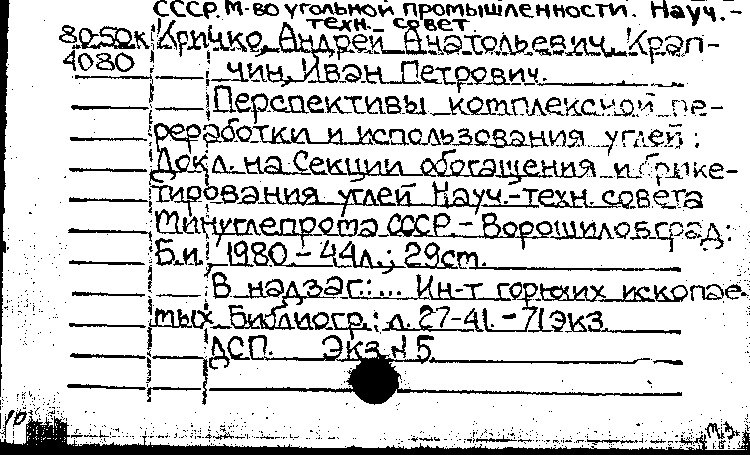 СССР. М-во угольной промышленности. Науч.-
техн. совет
80-50к Кричко, Андрей Анатольевич, Крап-
4080 чин, Иван Петрович.
Перспективы комплексной пе-
реработки и использования углей:
Докл. на Секции обогащения и брике-
тирования углей Науч.-техн. совета
Минуглепрома СССР. - Ворошиловград:
Б.и., 1980. - 44л.; 29ст.
В надзаг.: ... Ин-т горючих ископае-
мых. Библиогр.: л. 27-41. - 71 экз.
ДСП. Экз. N 5
10
т.з.